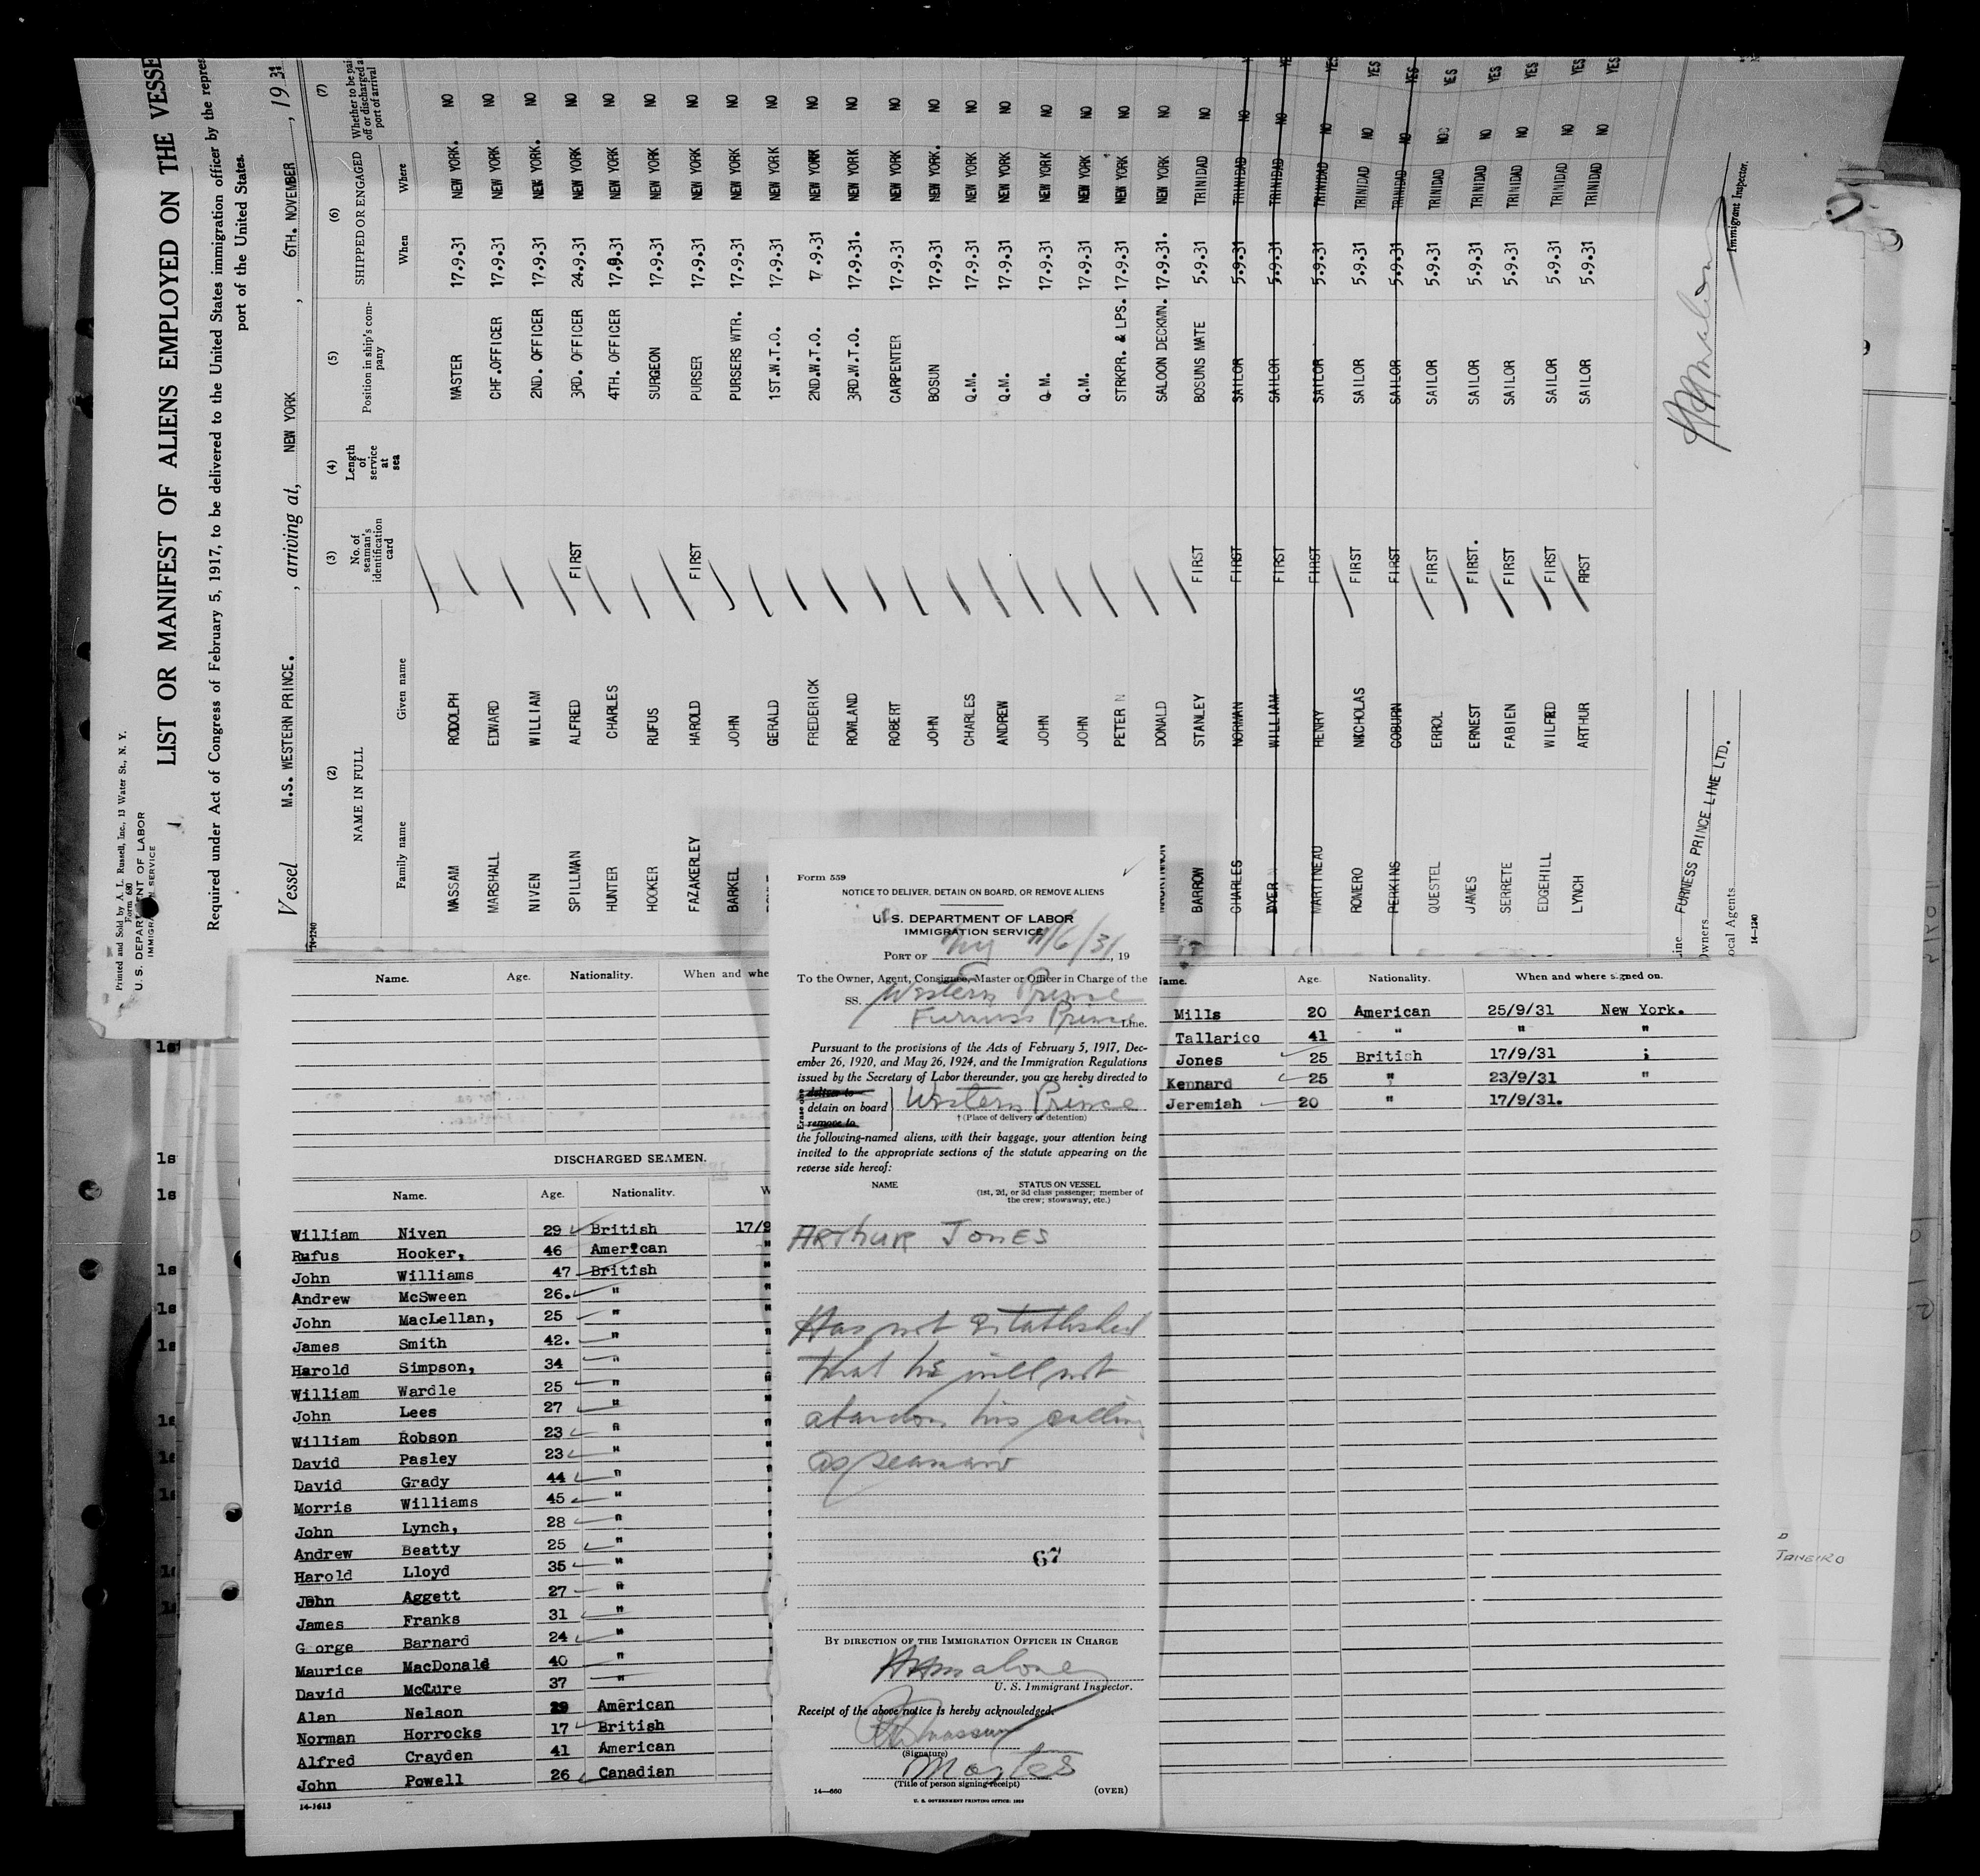 Printed and Sold by A. L. Russell, Inc., 13 Water St., N. Y.
Form 680
U. S. DEPARTMENT OF LABOR
IMMIGRATION SERVICE
LIST OR MANIFEST OF ALIENS EMPLOYED ON THE VESSE
Required under Act of Congress of February 5, 1917, to be delivered to the United States immigration officer by the repres
port of the United States.
Vessel M.S. WESTERN PRINCE. , arriving at, NEW YORK , 6TH. NOVEMBER , 1931
14-1240
(2) (3) (4) (5) (6) (7)
NAME IN FULL No. of seaman's identification card Length of service at sea Position in ship's company SHIPPED OR ENGAGED Whether to be paid off or discharged at port of arrival
Family name Given name When Where
MASSAM RODOLPH MASTER 17.9.31 NEW YORK. NO
MARSHALL EDWARD CHF.OFFICER 17.9.31 NEW YORK NO
NIVEN WILLIAM 2ND. OFFICER 17.9.31 NEW YORK. NO
SPILLMAN ALFRED FIRST 3RD. OFFICER 24.9.31 NEW YORK NO
HUNTER CHARLES 4TH. OFFICER 17.9.31 NEW YORK NO
HOOKER RUFUS SURGEON 17.9.31 NEW YORK NO
FAZAKERLEY HAROLD FIRST PURSER 17.9.31 NEW YORK NO
BARKEL JOHN PURSERS WTR. 17.9.31 NEW YORK NO
GERALD 1ST.W.T.O. 17.9.31 NEW YORK NO
FREDERICK 2ND.W.T.O. 17.9.31 NEW YORK NO
ROWLAND 3RD.W.T.O. 17.9.31. NEW YORK NO
ROBERT CARPENTER 17.9.31 NEW YORK NO
JOHN BOSUN 17.9.31 NEW YORK. NO
CHARLES Q.M. 17.9.31 NEW YORK NO
ANDREW Q.M. 17.9.31 NEW YORK NO
JOHN Q.M. 17.9.31 NEW YORK NO
JOHN Q.M. 17.9.31 NEW YORK NO
PETER N STRKPR. & LPS. 17.9.31 NEW YORK NO
DONALD SALOON DECKMN. 17.9.31. NEW YORK NO
BARROW STANLEY FIRST BOSUNS MATE 5.9.31 TRINIDAD NO
CHARLES NORMAN FIRST SAILOR 5.9.31 TRINIDAD NO YES
DYER WILLIAM FIRST SAILOR 5.9.31 TRINIDAD NO YES
MARTINEAU HENRY FIRST SAILOR 5.9.31 TRINIDAD NO YES
ROMERO NICHOLAS FIRST SAILOR 5.9.31 TRINIDAD NO YES
PERKINS COBURN FIRST SAILOR 5.9.31 TRINIDAD NO YES
QUESTEL ERROL FIRST SAILOR 5.9.31 TRINIDAD NO YES
JAMES ERNEST FIRST. SAILOR 5.9.31 TRINIDAD NO YES
SERRETE FABIEN FIRST SAILOR 5.9.31 TRINIDAD NO YES
EDGEHILL WILFRED FIRST SAILOR 5.9.31 TRINIDAD NO YES
LYNCH ARTHUR FIRST SAILOR 5.9.31 TRINIDAD NO YES
Line FURNESS PRINCE LINE LTD.
Owners
Local Agents
14-1240
Immigrant Inspector.
Name. Age. Nationality. When and whe
DISCHARGED SEAMEN.
Name. Age. Nationality. W
William Niven 29 British 17/9
Rufus Hooker, 46 American "
John Williams 47 British "
Andrew McSween 26. " "
John MacLellan, 25 " "
James Smith 42. " "
Harold Simpson, 34 " "
William Wardle 25 " "
John Lees 27 " "
William Robson 23 " "
David Pasley 23 " "
David Grady 44 " "
Morris Williams 45 " "
John Lynch, 28 " "
Andrew Beatty 25 " "
Harold Lloyd 35 " "
John Aggett 27 " "
James Franks 31 " "
G orge Barnard 24 " "
Maurice MacDonald 40 " "
David McCure 37 " "
Alan Nelson 29 American
Norman Horrocks 17 British
Alfred Crayden 41 American
John Powell 26 Canadian
14-1613
Form 559
NOTICE TO DELIVER, DETAIN ON BOARD, OR REMOVE ALIENS
U. S. DEPARTMENT OF LABOR
IMMIGRATION SERVICE
PORT OF NY 11/6/31, 19
To the Owner, Agent, Consignee, Master or Officer in Charge of the
SS. Western Prince
Furness Prince Line.
Pursuant to the provisions of the Acts of February 5, 1917, Dec-
ember 26, 1920, and May 26, 1924, and the Immigration Regulations
issued by the Secretary of Labor thereunder, you are hereby directed to
Erase one
deliver to
detain on board Western Prince
remove to
† (Place of delivery or detention)
the following-named aliens, with their baggage, your attention being
invited to the appropriate sections of the statute appearing on the
reverse side hereof:
NAME STATUS ON VESSEL
(1st, 2d, or 3d class passenger; member of
the crew; stowaway, etc.)
ARTHUR JONES
Has not established
that he will not
abandon his calling
as seaman
67
BY DIRECTION OF THE IMMIGRATION OFFICER IN CHARGE
HHMalone
U. S. Immigrant Inspector.
Receipt of the above notice is hereby acknowledged.
(Signature)
Master
(Title of person signing receipt)
14—660 (OVER)
U. S. GOVERNMENT PRINTING OFFICE: 1929
ame. Age. Nationality. When and where signed on.
Mills 20 American 25/9/31 New York.
Tallarico 41 " " "
Jones 25 British 17/9/31 ;
Kennard 25 " 23/9/31 "
Jeremiah 20 " 17/9/31.
JANEIRO